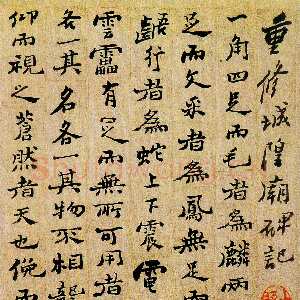 重修城隍廟碑記
一角四足而毛者為麟兩
足而文采者為鳳無足而
行者為蛇上下震電
雲靁有足而無所可用者
各一其名各一其物不相亂
仰而視之蒼然者天也俛而